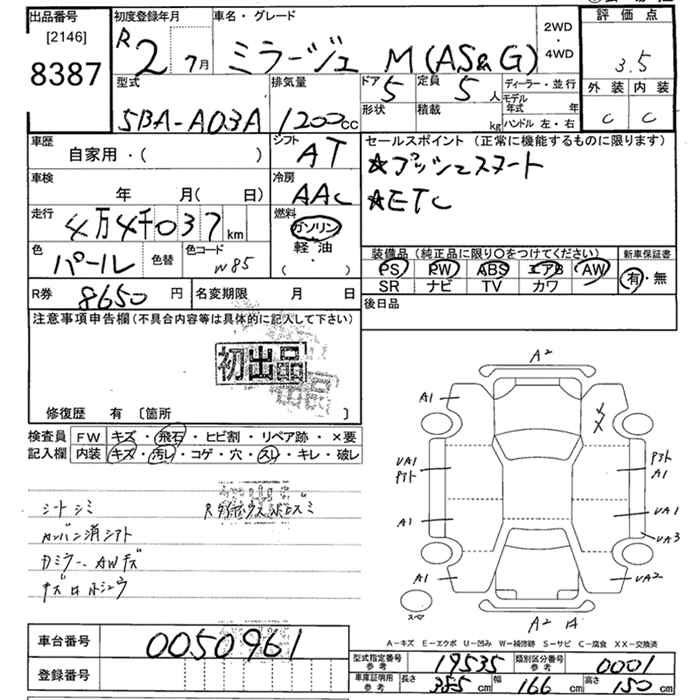 出品番号
[2146]
8387
初度登録年月
R2 7月
車名・グレード
ミラージュ M (AS&G)
2WD
・
4WD
評価点
3.5
外装 内装
C C
型式
5BA-A03A
排気量
1200cc
ドア 5
形状
定員 5人
積載 kg
ディーラー・並行
モデル年式 年
ハンドル 左・右
車歴
自家用・( )
シフト
AT
車検
年 月( 日)
冷房
AAC
走行
4万4千037km
燃料
ガソリン
・
軽油
( )
色
パール
色替
色コード
W85
R券 8650円
名変期限 月 日
セールスポイント(正常に機能するものに限ります)
☆プッシュスタート
☆ETC
装備品(純正品に限り○をつけてください)
PS PW ABS エアB AW
SR ナビ TV カワ
新車保証書
有・無
後日品
注意事項申告欄(不具合内容等は具体的に記入して下さい)
初出品
修復歴 有 〔箇所 〕
検査員
記入欄
FW キズ・飛石・ヒビ割・リペア跡・×要
内装 キズ・汚レ・コゲ・穴・スレ・キレ・破レ
シートシミ
カンバン消シアト
Dミラー、AWキズ
キズ
A2
A1
A1
UA1
A1
A1
UA1
UA3
A1
UA2
スペア
A2
A-キズ E-エクボ U-凹み W-補修跡 S-サビ C-腐食 XX-交換済
車台番号
0050961
登録番号
型式指定番号
参考
19535
類別区分番号
参考
0001
車庫証明用
参考
長さ 355cm 幅 166cm 高さ 150cm